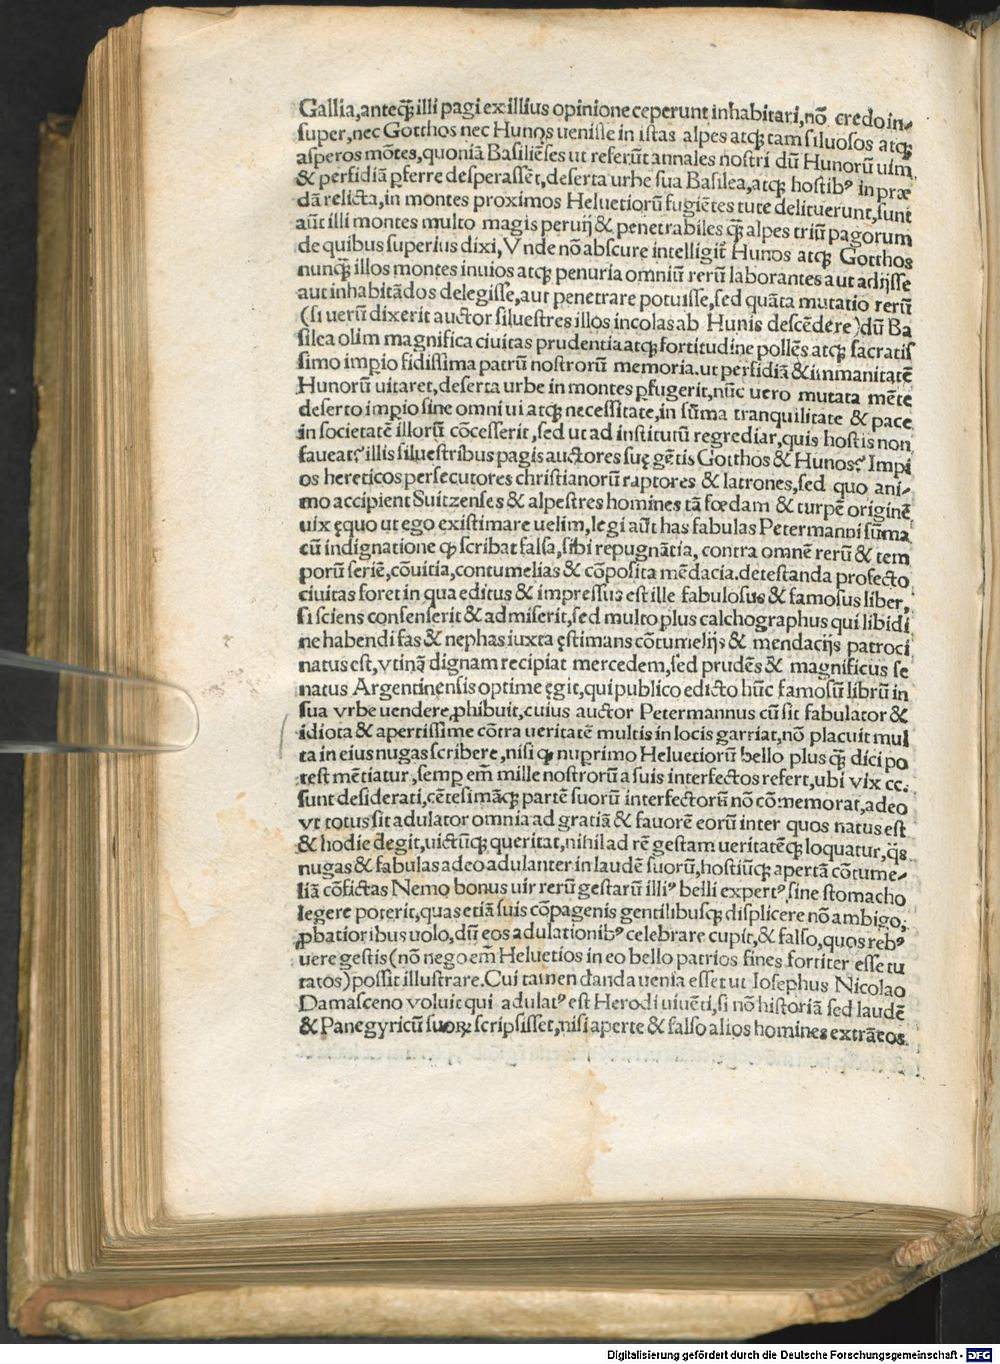 Gallia,anteq̃ illi pagi ex illius opinione ceperunt inhabitari,nõ credo in-
super,nec Gotthos nec Hunos uenisse in istas alpes atq; tam siluosos atq;
asperos mõtes,quoniã Basiliẽses ut referũt annales nostri dũ Hunorũ uim
& perfidiã ꝑferre desperassẽt,deserta urbe sua Basilea,atq; hostibꝰ in præ
dã relicta,in montes proximos Heluetiorũ fugiẽtes tute delituerunt,sunt
aũt illi montes multo magis peruij & penetrabiles q̃ alpes triũ pagorum
de quibus superius dixi,Vnde nõ abscure intelligit̃ Hunos atq; Gotthos
nunq̃ illos montes inuios atq; penuria omniũ rerũ laborantes aut adijsse
aut inhabitãdos delegisse,aut penetrare potuisse,sed quãta mutatio rerũ
(si uerũ dixerit auctor siluestres illos incolas ab Hunis descẽdere)dũ Ba
silea olim magnifica ciuitas prudentia atq; fortitudine pollẽs atq; sacratis
simo impio fidissima patrũ nostrorũ memoria.ut perfidiã & immanitatẽ
Hunorũ uitaret,deserta urbe in montes ꝑfugerit,nũc uero mutata mẽte
deserto impio sine omni ui atq; necessitate,in sũma tranquilitate & pace
in societatẽ illorũ cõcesserit,sed ut ad institutũ regrediar,quis hostis non
faueat? illis siluestribus pagis auctores suę gẽtis Gotthos & Hunos? Impi
os hereticos persecutores christianorũ raptores & latrones,sed quo ani-
mo accipient Suitzenses & alpestres homines tã fœdam & turpẽ originẽ
uix ęquo ut ego existimare uelim,legi aũt has fabulas Petermanni sũma
cũ indignatione ꝙ scribat falsa,sibi repugnãtia, contra omnẽ rerũ & tem
porũ seriẽ,cõuitia,contumelias & cõposita mẽdacia.detestanda profecto
ciuitas foret in qua editus & impressus est ille fabulosus & famosus liber,
si sciens consenserit & admiserit,sed multo plus calchographus qui libidi
ne habendi fas & nephas iuxta ęstimans cõtumelijs & mendacijs patroci
natus est,vtinã dignam recipiat mercedem,sed prudẽs & magnificus se
natus Argentinensis optime ęgit,qui publico edicto hũc famosũ librũ in
sua vrbe uendere,ꝓhibuit,cuius auctor Petermannus cũ sit fabulator &
idiota & apertissime cõtra ueritatẽ multis in locis garriat,nõ placuit mul
ta in eius nugas scribere,nisi ꝙ nuprimo Heluetiorũ bello plus q̃ dici po
test mẽtiatur,semp em̃ mille nostrorũ a suis interfectos refert,ubi vix cc.
sunt desiderati,cẽtesimãq; partẽ suorũ interfectorũ nõ cõmemorat,adeo
vt totus sit adulator omnia ad gratiã & fauorẽ eorũ inter quos natus est
& hodie degit,uictũq; queritat,nihil ad rẽ gestam ueritatẽq; loquatur,q̃s
nugas & fabulas adeo adulanter in laudẽ suorũ,hostiũq; apertã cõtume-
liã cõfictas Nemo bonus uir rerũ gestarũ illiꝰ belli expertꝰ,sine stomacho
legere poterit,quas etiã suis cõpagenis gentilibusq; displicere nõ ambigo,
ꝓbatioribus uolo,dũ eos adulationibꝰ celebrare cupit,& falso,quos rebꝰ
vere gestis(nõ nego em̃ Heluetios in eo bello patrios fines fortiter esse tu
tatos)possit illustrare.Cui tamen danda uenia esset ut Iosephus Nicolao
Damasceno voluit qui adulatꝰ est Herodi uiuẽti,si nõ historiã sed laudẽ
& Panegyricũ suoꝝ scripsisset,nisi aperte & falso alios homines extrãeos
Digitalisierung gefördert durch die Deutsche Forschungsgemeinschaft - DFG